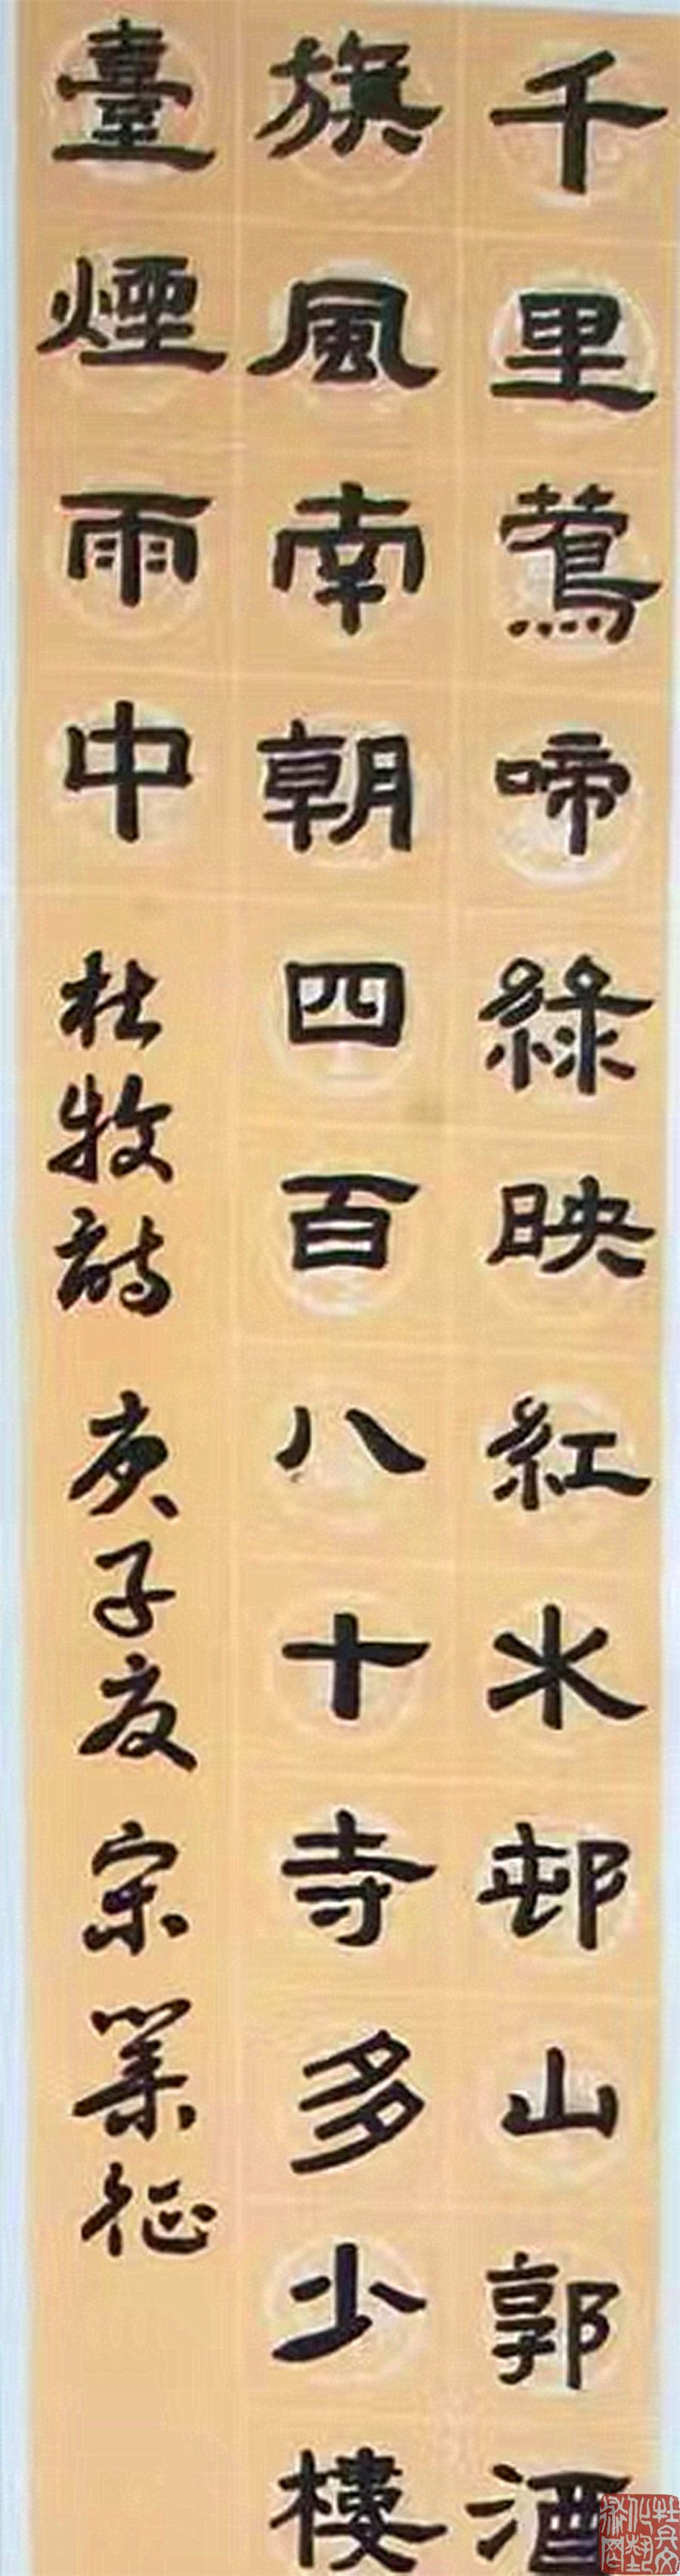 千里鶯啼綠映紅水邨山郭酒
旗風南朝四百八十寺多少樓
臺煙雨中 杜牧詩 庚子夏 宋業征